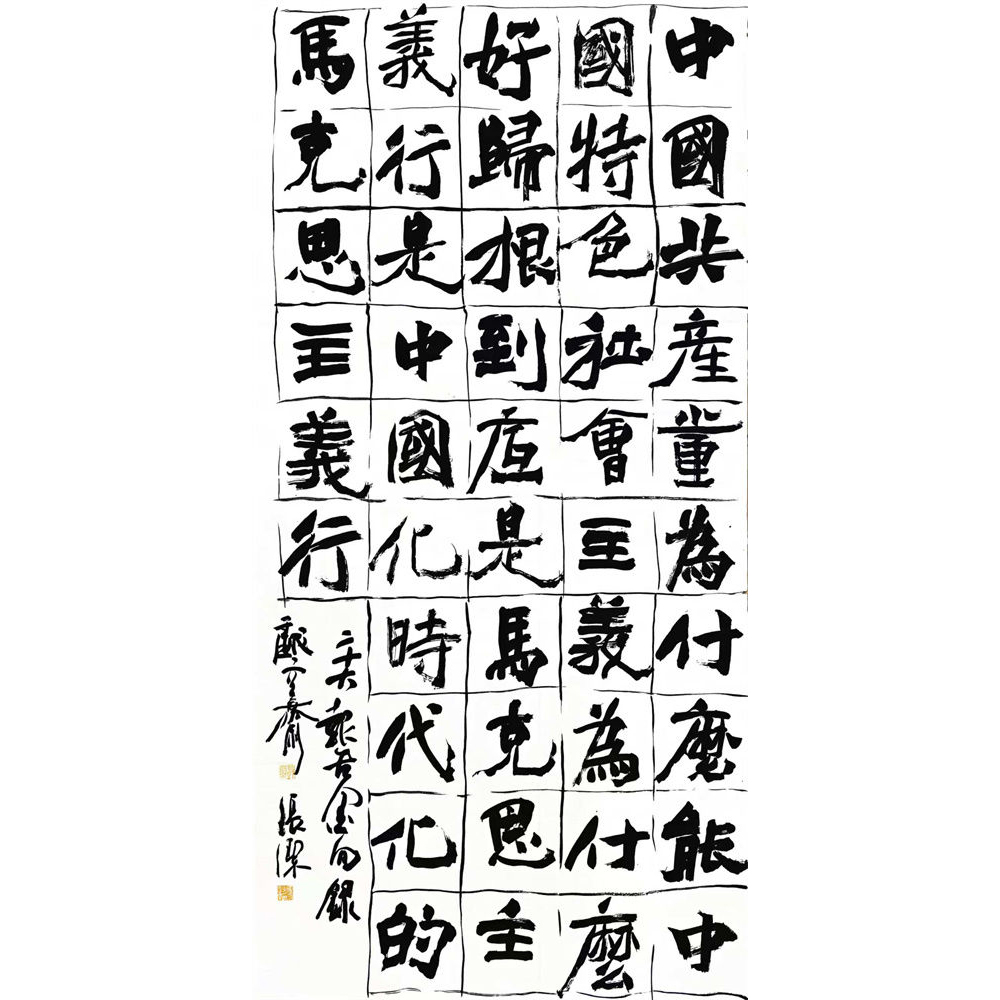 中國共産黨為付麼能中
國特色社會主義為付麼
好歸根到底是馬克思主
義行是中國化時代化的
馬克思主義行
二十大報告金句錄
張潔